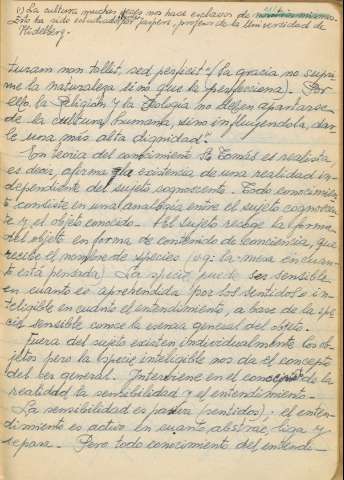 (1) La cultura muchas veces nos hace esclavos de
Esto ha sido estudiado por Jaspers, profesor de la Universidad de
Heidelberg.
turam non tollet, sed perficit" (la gracia no supri-
me la naturaleza sino que la perfecciona). Por
ello la Religión y la Teología no deben apartarse
de la cultura humana, sino influyéndola, dar-
le una más alta dignidad".
En teoría del conocimiento Sto Tomás es realista
es decir, afirma la existencia de una realidad in-
dependiente del sujeto cognoscente. Todo conocimien-
to consiste en una analogía entre el sujeto cognoscen-
te y el objeto conocido. El sujeto recoge la forma
del objeto en forma de contenido de conciencia, que
recibe el nombre de species (eg: la mesa en cuan-
to está pensada) La specie puede ser sensible
en cuanto es aprehendida por los sentidos e in-
teligible en cuanto el entendimiento, a base de la spe-
cies sensible conoce la esencia general del objeto.
Fuera del sujeto existen individualmente los ob-
jetos pero la especie inteligible nos da el concepto
del ser general. Interviene en el concepto de la
realidad, la sensibilidad y el entendimiento.
La sensibilidad es pasiva (sentidos); el enten-
dimiento es activo en cuanto abstrae, liga y
separa. Pero todo conocimiento del entendi-